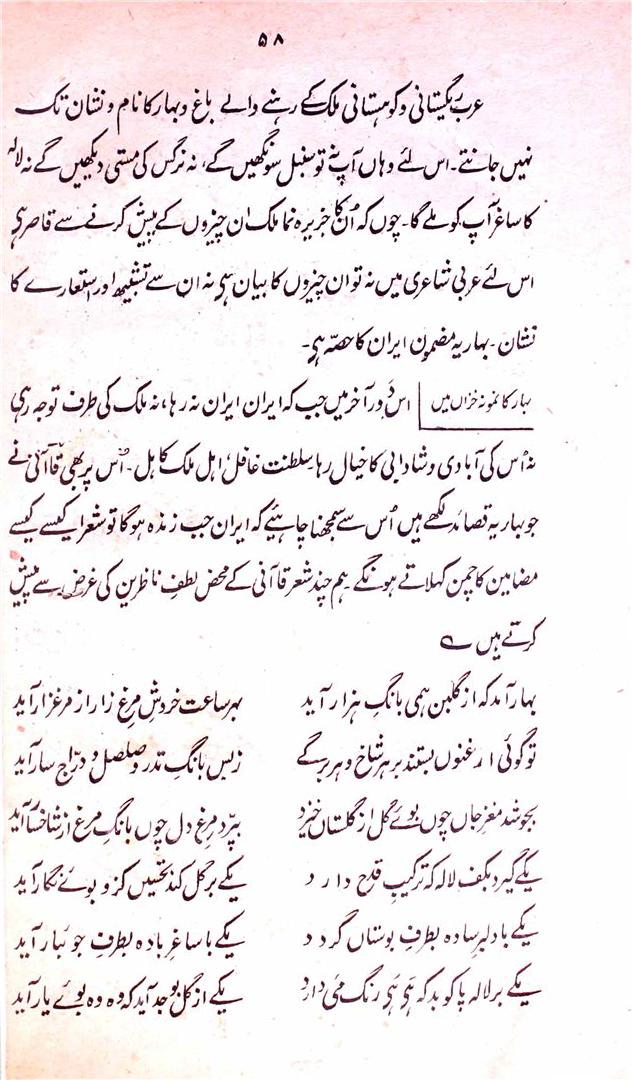 ۵۸
عرب ریگستانی و کوہستانی ملک کے رہنے والے باغ و بہار کا نام و نشان تک
نہیں جانتے۔ اس لئے وہاں آپ نہ تو سنبل سونگھیں گے، نہ نرگس کی مستی دیکھیں گے نہ لالہ
کا ساغر آپ کو ملے گا۔ چوں کہ اُن کا جزیرہ نما ملک ان چیزوں کے پیش کرنے سے قاصر ہی
اس لئے عربی شاعری میں نہ تو ان چیزوں کا بیان ہی نہ ان سے تشبیھ اور استعارے کا
نشان۔ بہاریہ مضمون ایران کا حصہ ہی۔
بہار کا نمونہ خزاں میں | اس دَورِ آخر میں جب کہ ایران ایران نہ رہا، نہ ملک کی طرف توجہ رہی
نہ اُس کی آبادی و شادابی کا خیال رہا سلطنت غافل، اہل ملک کاہل۔ اُس پر بھی قاآنی نے
جو بہاریہ قصائد لکھے ہیں اُس سے سمجھنا چاہیئے کہ ایران جب زندہ ہوگا تو شعرا کیسے کیسے
مضامین کا چمن کہلاتے ہونگے۔ ہم چند شعر قاآنی کے محض لطفِ ناظرین کی غرض سے پیش
کرتے ہیں ؎
بہار آمد کہ از گلبن ہمی بانگِ ہزار آید بہر ساعت خروشِ مرغ زار از مرغزار آید
تو گوئی ارغنوں بستند بر ہر شاخ و ہر برگے زبس بانگِ تدرو و صلصل و درّاج سار آید
بجوشد مغزِ جاں چوں بوئے گل از گلستاں خیزد بپرد مرغِ دل چوں بانگِ مرغ از شاخسار آید
یکے گیرد بکف لالہ کہ ترکیبِ قدح دارد یکے بر گل کند تحسیں کزو بوئے نگار آید
یکے با دلبرِ سادہ بطرفِ بوستاں گردد یکے با ساغرِ بادہ بطرفِ جوئبار آید
یکے بر لالہ پا کوبد کہ ہَی ہَی رنگِ مَی دارد یکے از گل بوجد آید کہ وہ وہ بوئے یار آید